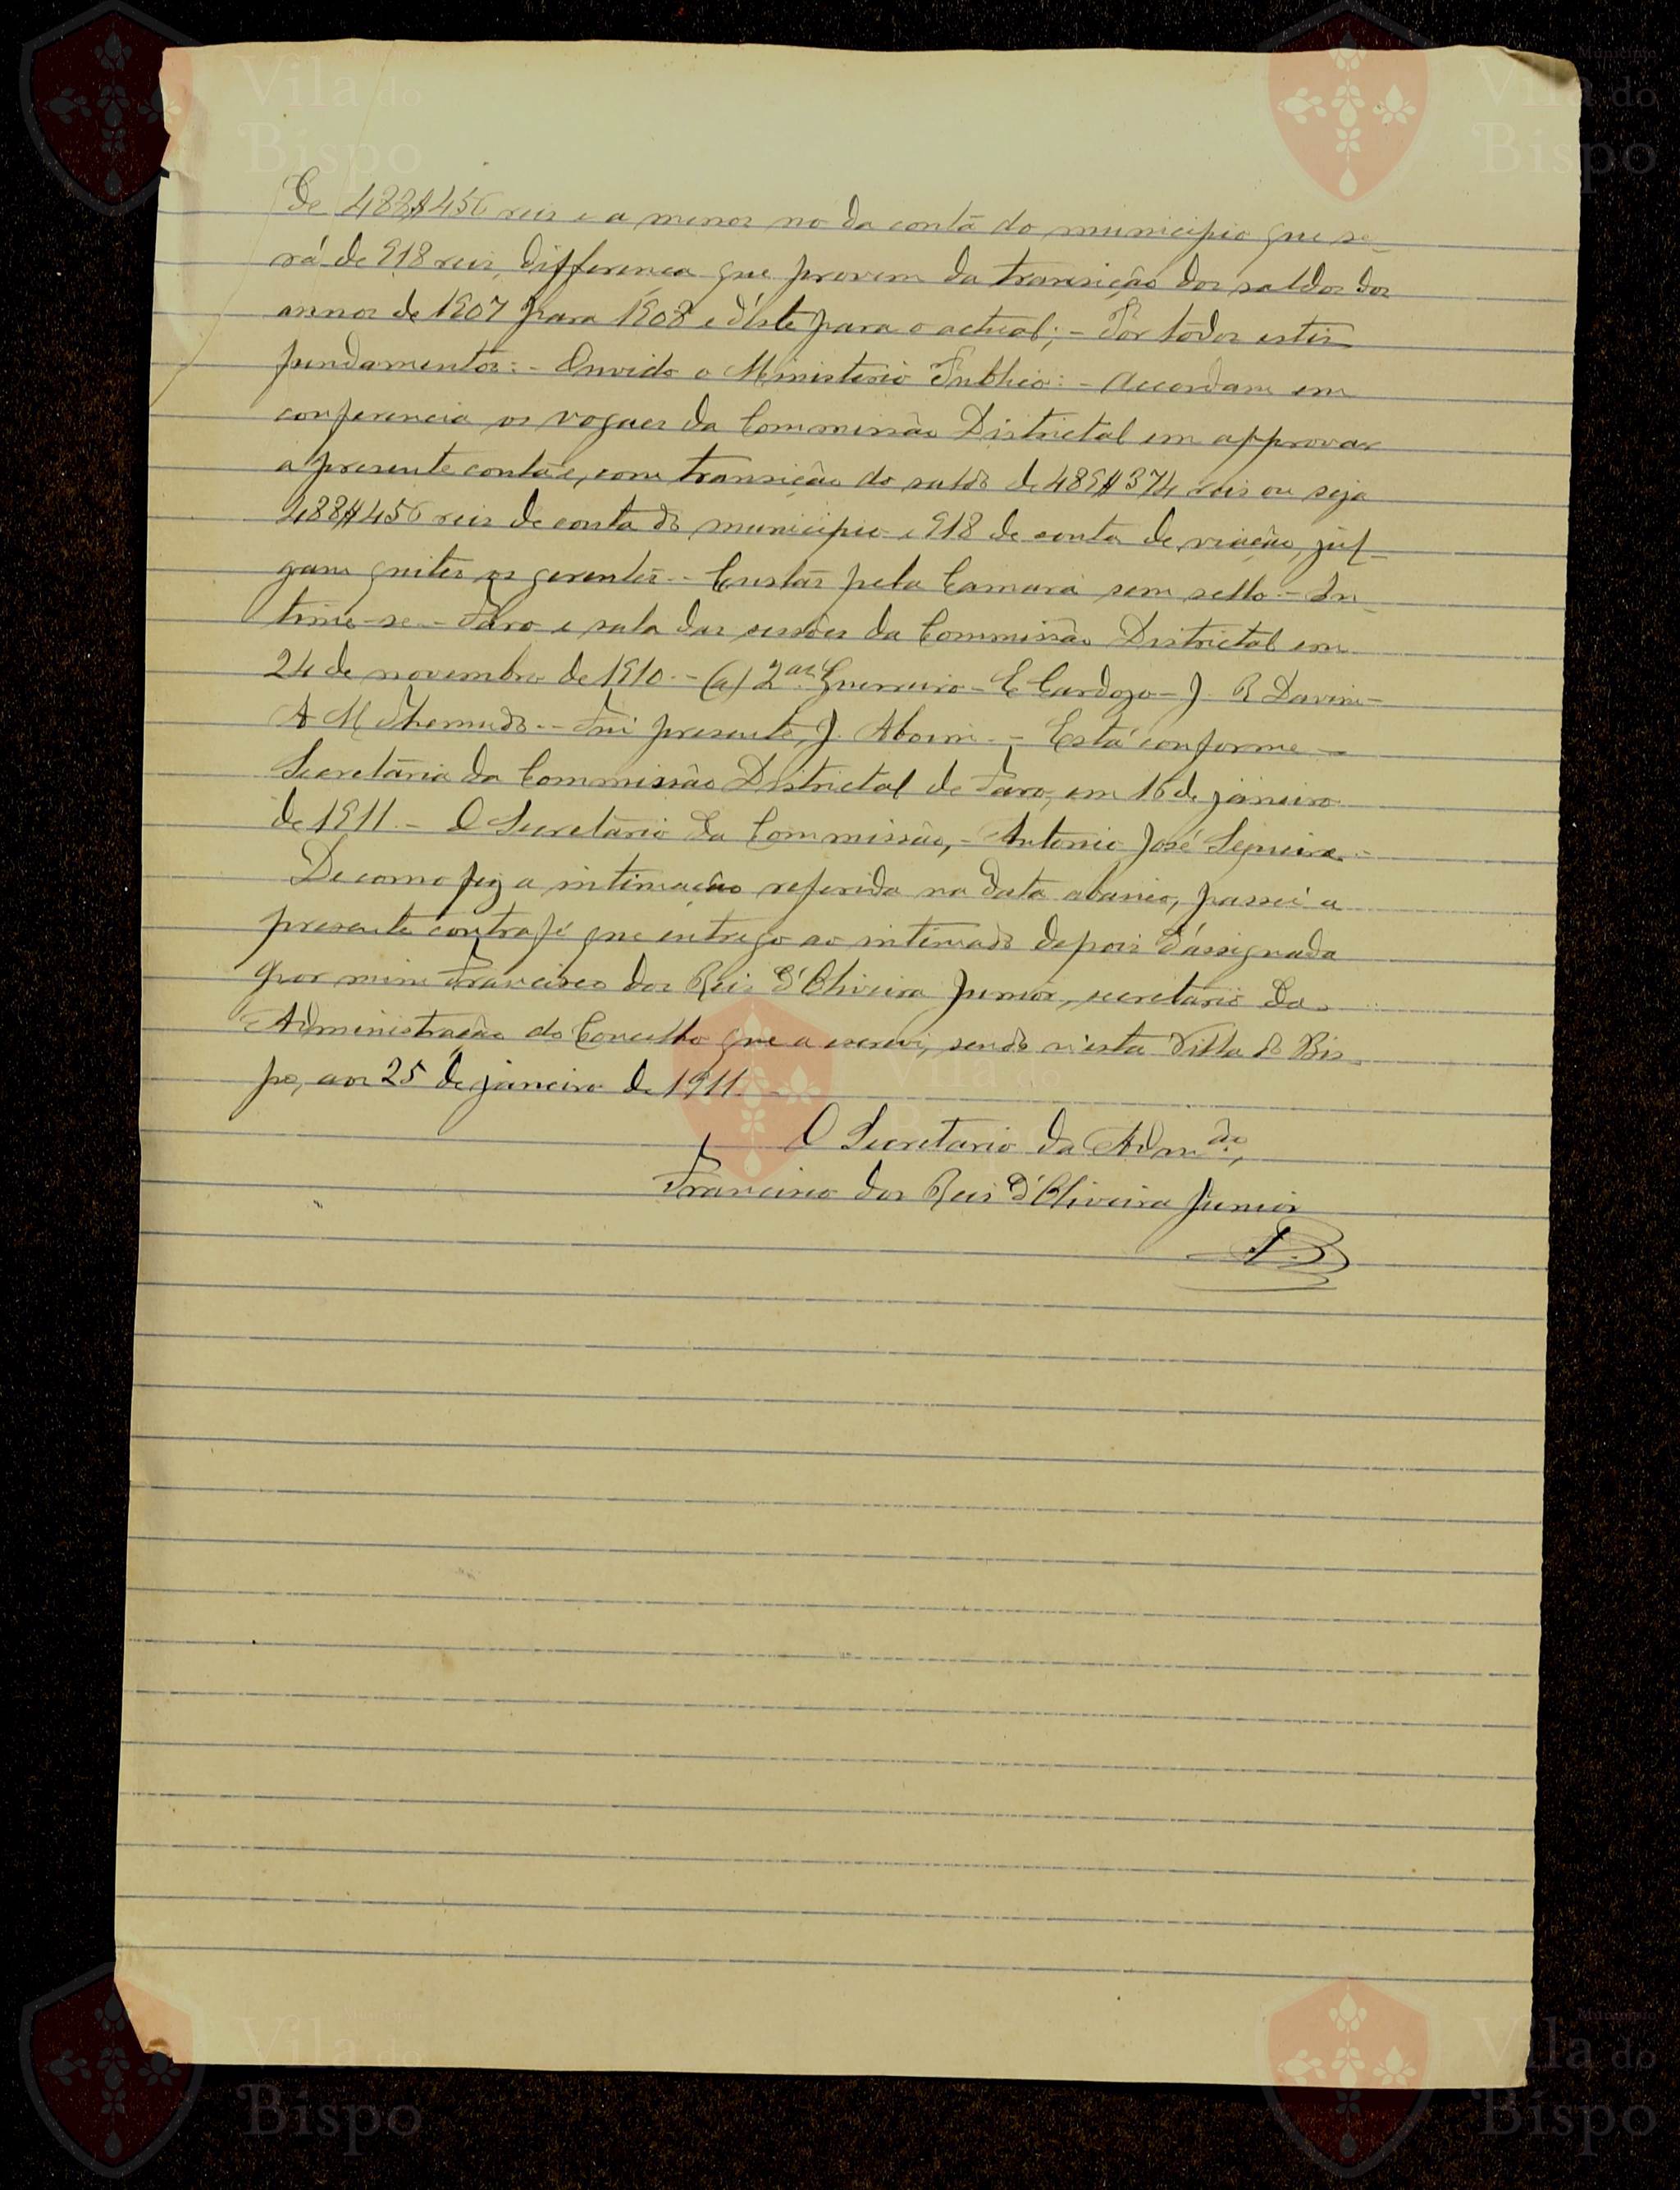 de 488$456 reis e a menos no da conta do municipio que se-
rá de 918 reis, differença que provem da transição dos saldos dos
annos de 1907 para 1908 e d'este para o actual; - Por todos estes
fundamentos: - Ouvido o Ministerio Publico: - Accordam em
conferencia os vogaes da Commissão Districtal em approvar
a presente conta e, com transição do saldo de 489$374 reis ou seja
488$456 reis de conta do municipio e 918 de conta de viação, jul-
gam quites os gerentes. - Custas pela Camara sem sello. - In-
time-se. - Faro e sala das sessões da Commissão Districtal em
24 de novembro de 1910. - (a) Guerreiro - C Cardozo - J. R Davim -
A M Themudo. - Fui presente, J. Aboim. - Está conforme -
Secretária da Commissão Districtal de Faro, em 16 de janeiro
de 1911. - O Secretario da Commissão, - Antonio José Sequeira. -
De como fiz a intimação referida na data abaixo, passei a
presente contrafé que entrego ao intimado depois d'assignada
por mim Francisco dos Reis d'Oliveira Junior, secretario da
Administração do Concelho que a escrevi, sendo n'esta Villa do Bis-
po, aos 25 de janeiro de 1911. -
O Secretario da Adm.ão,
Francisco dos Reis d'Oliveira Junior
Município
Vila do
Bispo